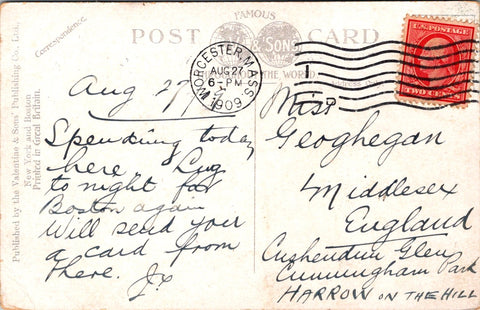 FAMOUS
POST CARD
& SONS
THE WORLD
Correspondence.
Published by the Valentine & Sons Publishing Co. Ltd.,
New York and Boston
Printed in Great Britain.
WORCESTER, MASS.
AUG 27
6-PM
1909
U.S. POSTAGE
TWO CENTS
Aug 27
Spending today
here
to night for
Boston again
Will send you
a card from
there.
Miss
Geoghegan
Middlesex
England
Cushendun Glen
Cunningham Park
HARROW ON THE HILL